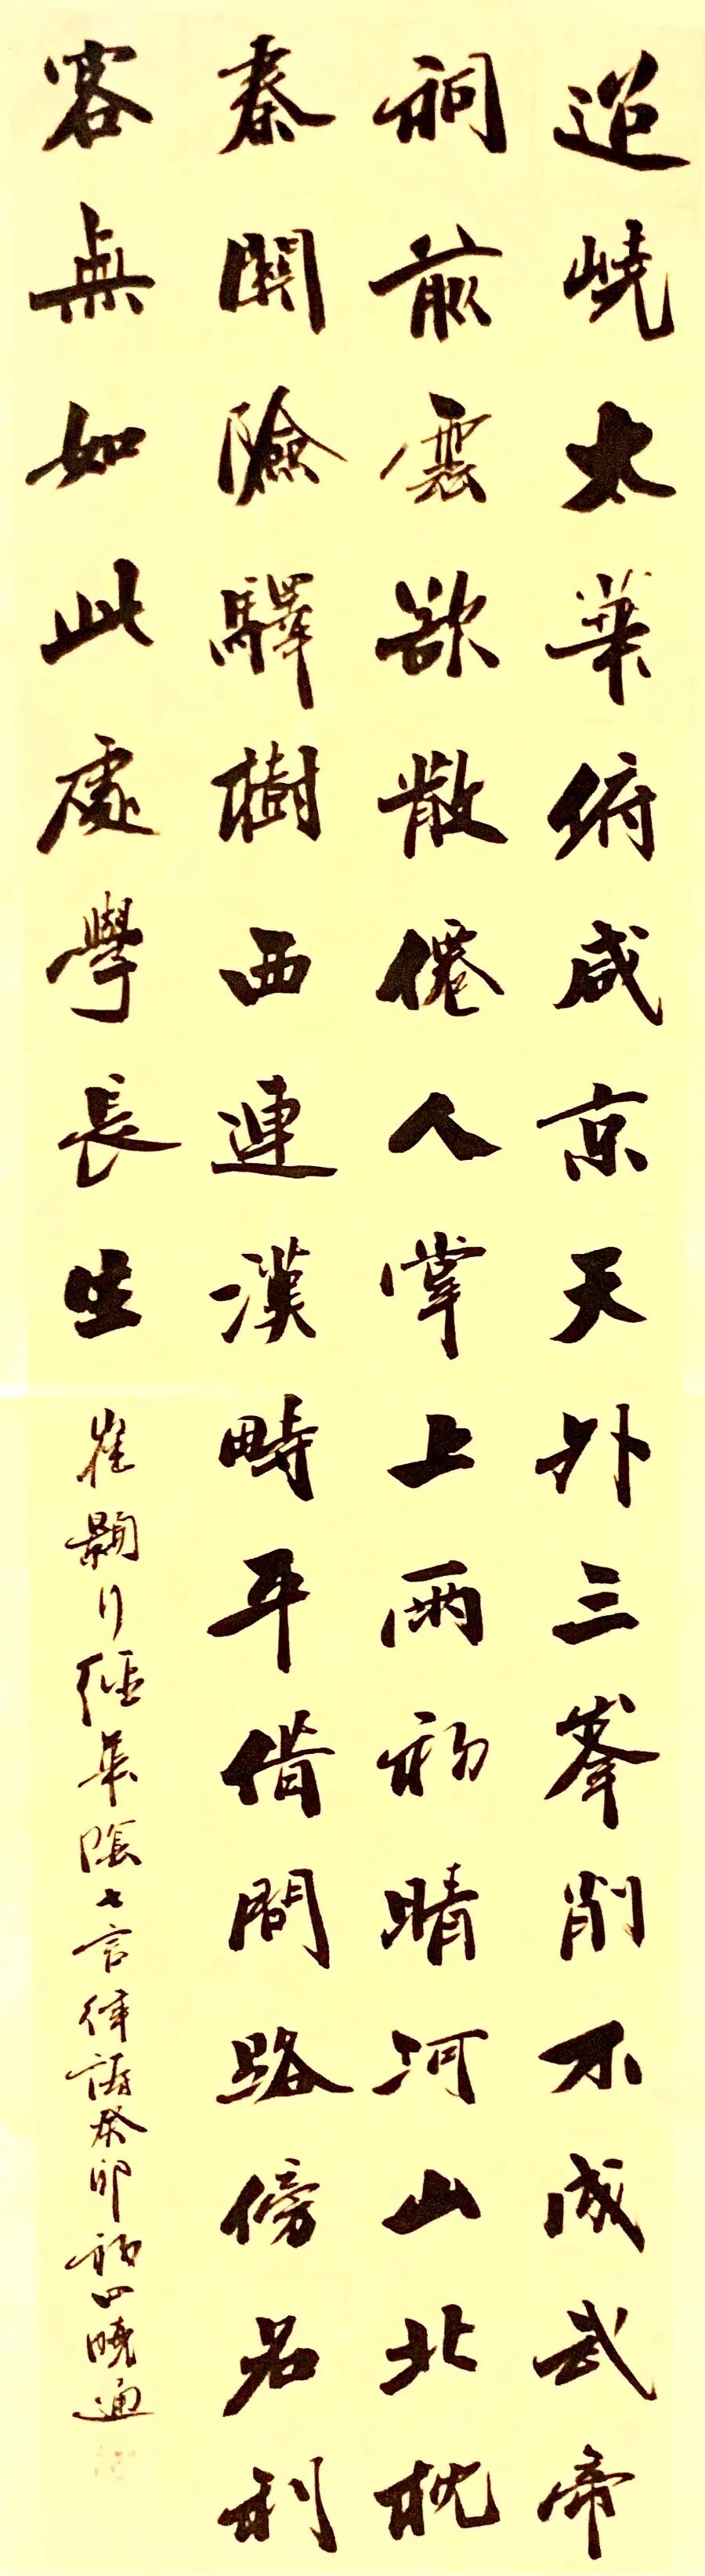 迢嶢太華俯咸京天外三峯削不成武帝
祠前雲欲散僊人掌上雨初晴河山北枕
秦關險驛樹西連漢畤平借問路傍名利
客無如此處學長生 崔顥行經華陰七言律詩癸卯曉通